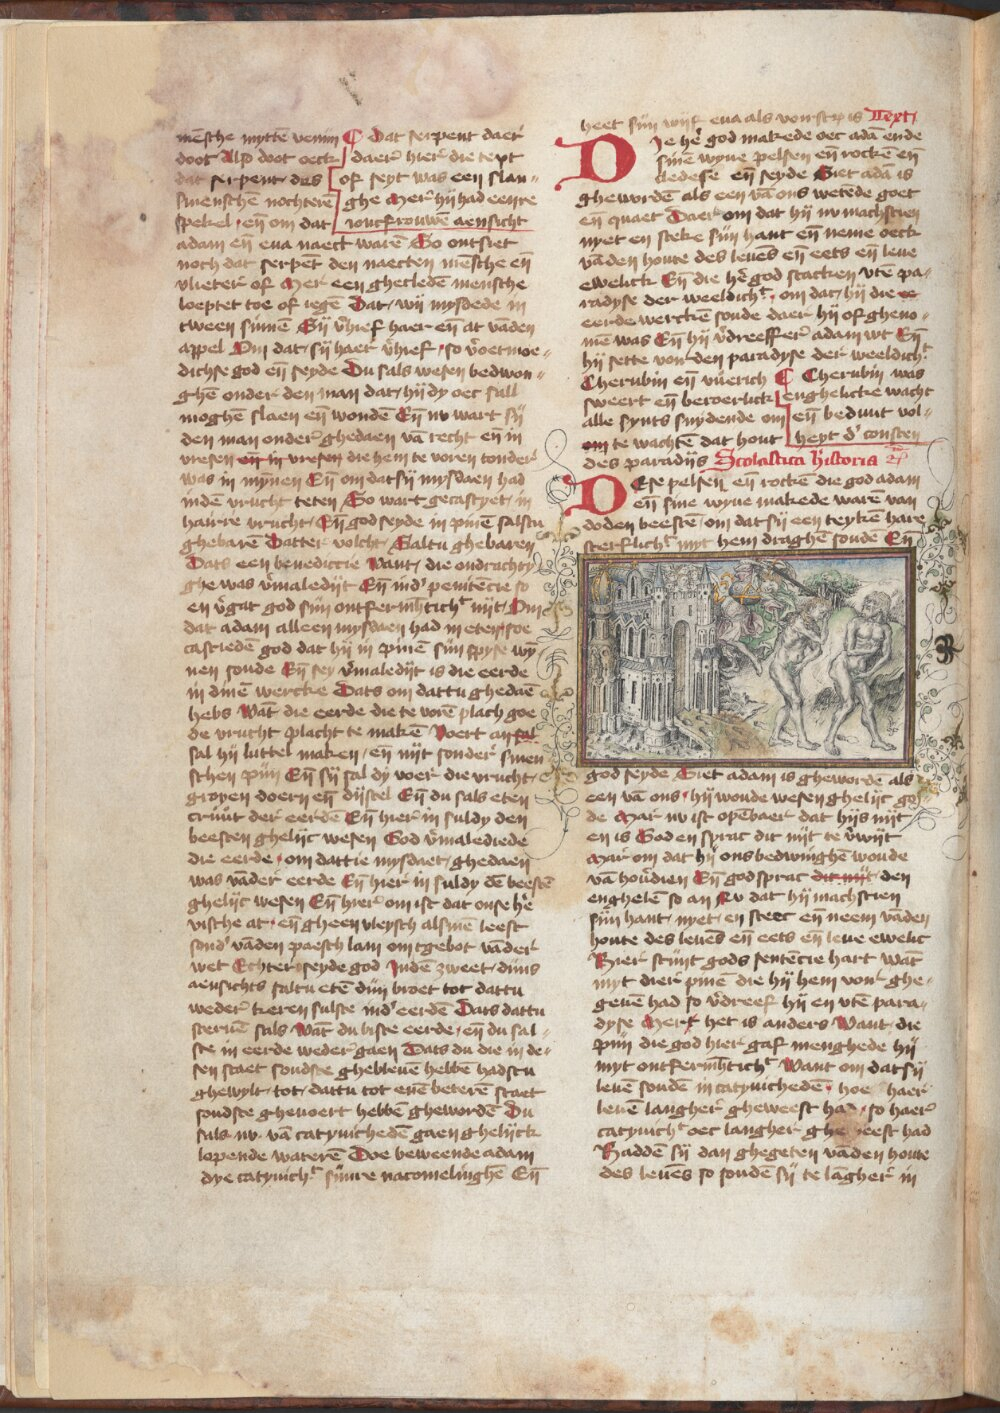 mēsche myttē venijn ₵ Dat serpent daer
doot Also doot oeck daer hier die text
dat serpent des of seyt was een slan-
smenschē nochtere ghe Mer hij had eenre
spekel en om dat ioncfrouwen aensicht
adam eñ eua naect warē So ontsiet
noch dat serpēt den naecten mēsche eñ
vlieter of Mer een ghecledē mensche
loeptet toe of iegē Dat wij mysdede in
tween sinnē Sij v̄hief haer eñ at vāden
appel Om dat sij haer v̄hief so v̄oetmoe-
dichse god eñ seyde Du sals wesen bedwon-
ghē onder den man dat hij dy oec sall
moghē slaen eñ wondē Eñ nv wart sij
den man onder ghedaen vā recht eñ in
vresen eñ in vresen die hem te voren tonder
was in mynnen Eñ om dat sij mysdaen had
indē vrucht teten So wart gecastyet in
haurre vrucht Eñ god seyde in pinē salstu
ghebarē Datter volcht Saltu ghebaren
Dats een benedictie Want die ondrachty
ghe was v̄maledijt Eñ ind' penitēcie so
en v̄gat god sijn ontfermh̄tich' nijt Om
dat adam alleen mysdaen had in eten soe
castiedē god dat hij in pinē sijn spyse wy-
nen soude Eñ sey v̄maledijt is die eerde
in dinē wercke Dats om dattu ghedaē
hebs Wāt die eerde die te vorē plach goe
de vrucht placht te makē Voert an sal
sal hij luttel maken eñ nijt sonder smen
schen pijn Eñ sij sal dy voer die vrucht
groyen doern eñ dijstel Eñ du sals eten
crūut der eerdē Eñ hier in suldy den
beesten ghelijc wesen God v̄malediede
die eerde om dattie mysdaet ghedaen
was vāder eerde Eñ hier in suldy dē beestē
ghelijc wesen Eñ hier om ist dat onse hē
vische at eñ gheen vleysch alsmē leest
sond' vāden paesch lam om tgebot vāder
wet Echter seyde god Indē zweet dijns
aensichts saltu etē dijn broet tot dattu
weder keren sulste ind' eerdē Dats dattu
steruē sals Wāt du biste eerde eñ du sal-
ste in eerde weder gaen Dats du die in de-
sen staet soudste ghebleuē hebbē hadstu
ghewylt tot dattu tot enē beterē staet
soudste gheuoert hebbē ghewordē Du
sals nv vā catyuichedē gaen ghelijck
lopende waterē Doe beweende adam
dye catyuich' sijnre nacomelinghē Eñ
heet sijn wijf eua als vorscr is Text
Die hē god makede oec adā ende
sinē wyue pelsen eñ rockē eñ
cledese eñ seyde Siet adā is
ghewordē als een vā ons wetede goet
eñ quaet Daer om dat hij nv machscien
nyet en steke sijn hant eñ neme oeck
vā den houte des leuēs eñ eets eñ leue
ewelick Eñ die hē god stacken vtē pa-
radyse der weeldich' om dat hij die ee
eerde werckē soude daer hij of gheno-
mē was Eñ hij v̄dreeffer adam wt Eñ
hij sette vor den paradyse der weeldich'
Cherubin eñ vuerich ₵ Cherubin was
sweert eñ beroerlick enghelicke wacht
alle synts snydende om eñ beduut vol-
om te wachtē dat hout heyt d' consten
des paradijs Scolastica historia
Dese pelsen eñ rockē die god adam
eñ sine wyue makede warē van
doden beestē om dat sij een teykē hare
sterflich' myt hem draghē soudē Eñ
god seyde Siet adam is ghewordē als
een vā ons hij woude wesen ghelijc go-
de Mar nv ist opēbaer dat hijs nijt
en is God en sprac dit nijt te v̄wijt
Mar om dat hij ons bedwinghē woude
vā houdien Eñ god sprac dit nijt den
enghelē so an Nv dat hij machscien
sijn hant nyet en steec eñ neem vāden
houte des leuēs eñ eets eñ leue ewelic
Hier scijnt gods sentēcie hart Wāt
myt dier pinē die hij hem vor ghe-
geuē had so v̄dreef hij en vtē para-
dyse Mer het is anders Want die
pijn die god hier gaf menghede hij
myt ontfermh̄tich' Want om dat sij
leuē soudē in catyuichedē hoe haer
leuē langher gheweest had so haer
catyuich' oec langher gheweest had
Haddē sij dan ghegeten vāden houte
des leuēs so soudē sij te lāgher in